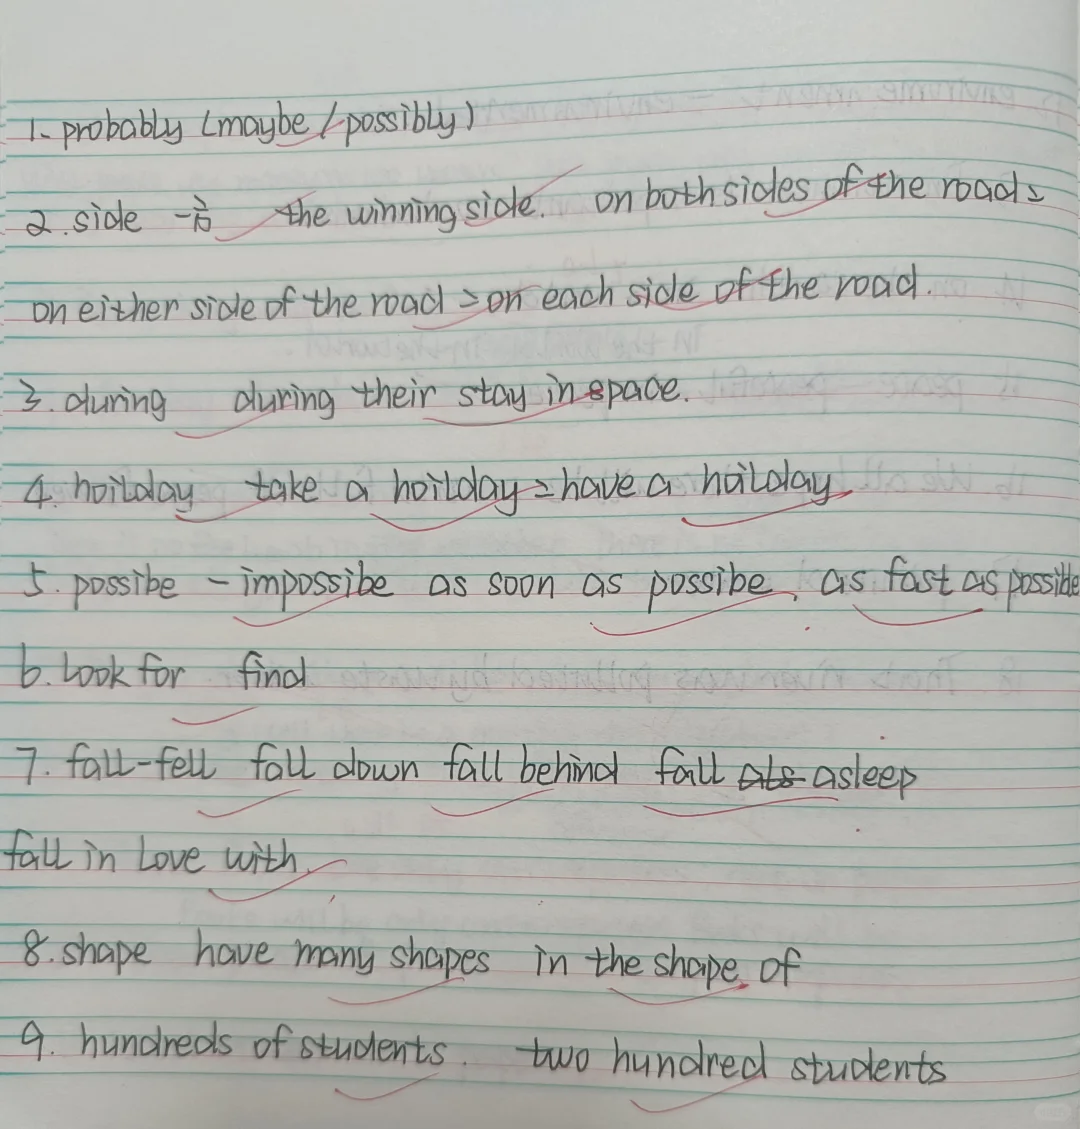 1. probably (maybe / possibly)
2. side - 方 the winning side. on both sides of the road =
on either side of the road = on each side of the road.
3. during during their stay in space.
4. hoilday take a hoilday = have a hoilday.
5. possibe - impossibe as soon as possibe. as fast as possible
6. Look for find
7. fall-fell fall down fall behind fall asleep
fall in love with.
8. shape have many shapes in the shape of
9. hundreds of students. two hundred students